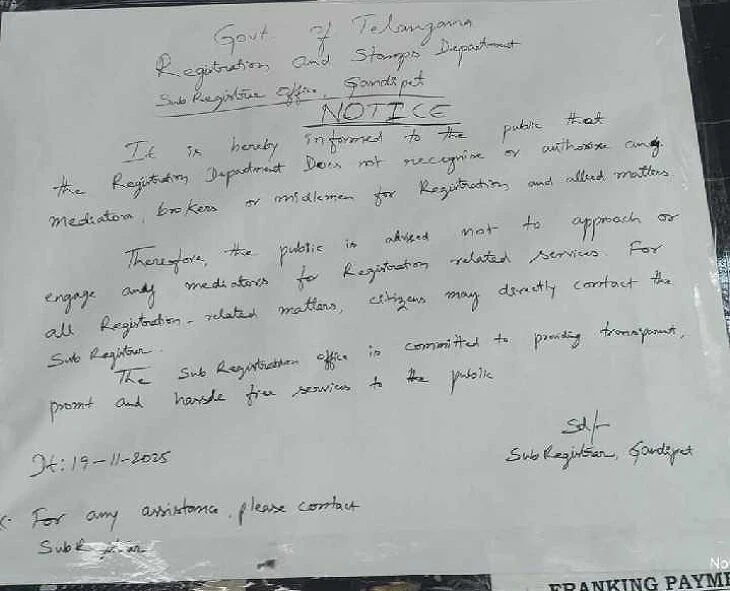 Govt. of Telangana
Registration and Stamps Department
Sub Registrar Office, Gandipet
NOTICE
It is hereby informed to the public that
the Registration Department Does not recognise or authorise any
mediators, brokers or midlemen for Registration and allied matters.
Therefore, the public is advised not to approach or
engage any mediators for Registration related services. For
all Registration-related matters, citizens may directly contact the
Sub Registrar.
The Sub Registration office is committed to providing transparent,
promt and hassle free services to the public
Sd/-
Sub Registrar, Gandipet
Dt: 19-11-2025
For any assistance, please contact
Sub
No
FRANKING PAYME